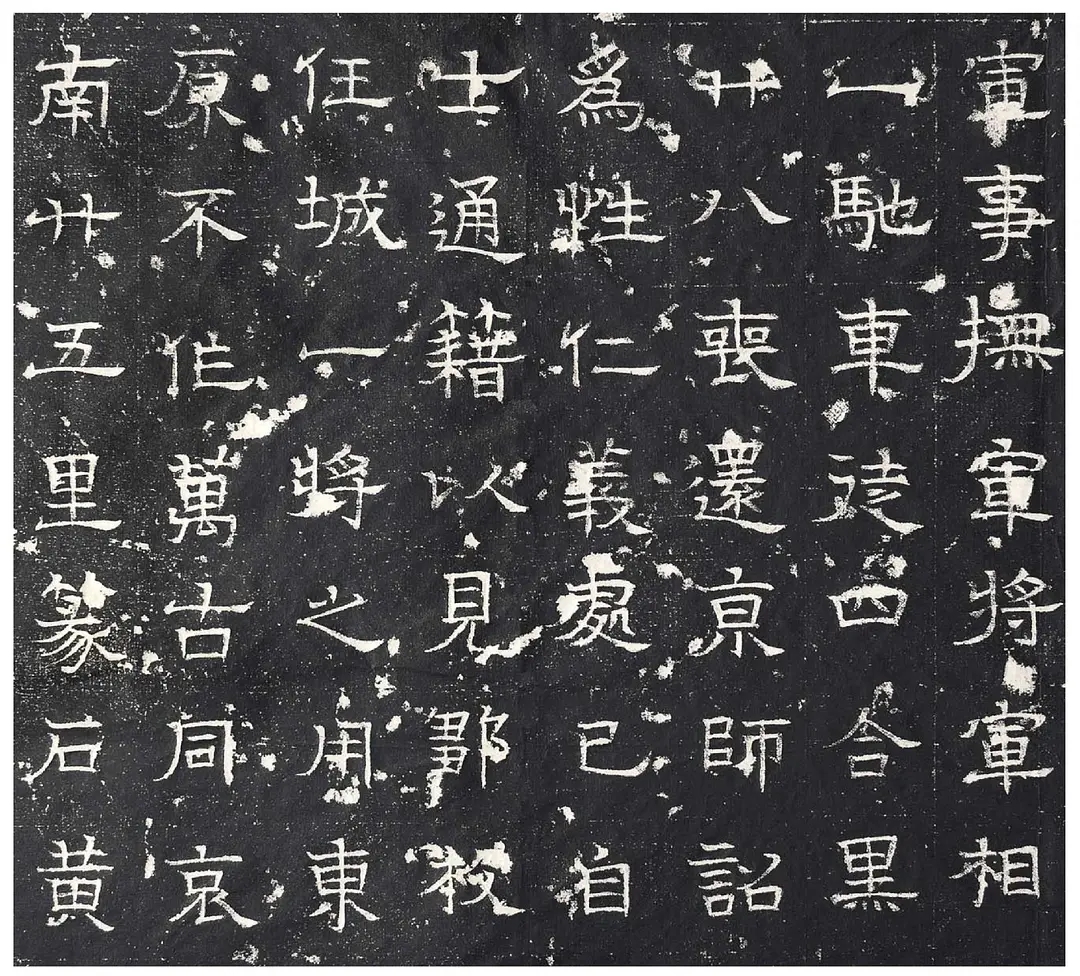 軍事撫軍將軍相
一馳車徒四合黑
廿八喪還京師詔
爲牲仁義處己自
士通籍以見鄴校
任城一將之用東
原不作萬古同哀
南廿五里篆石黄